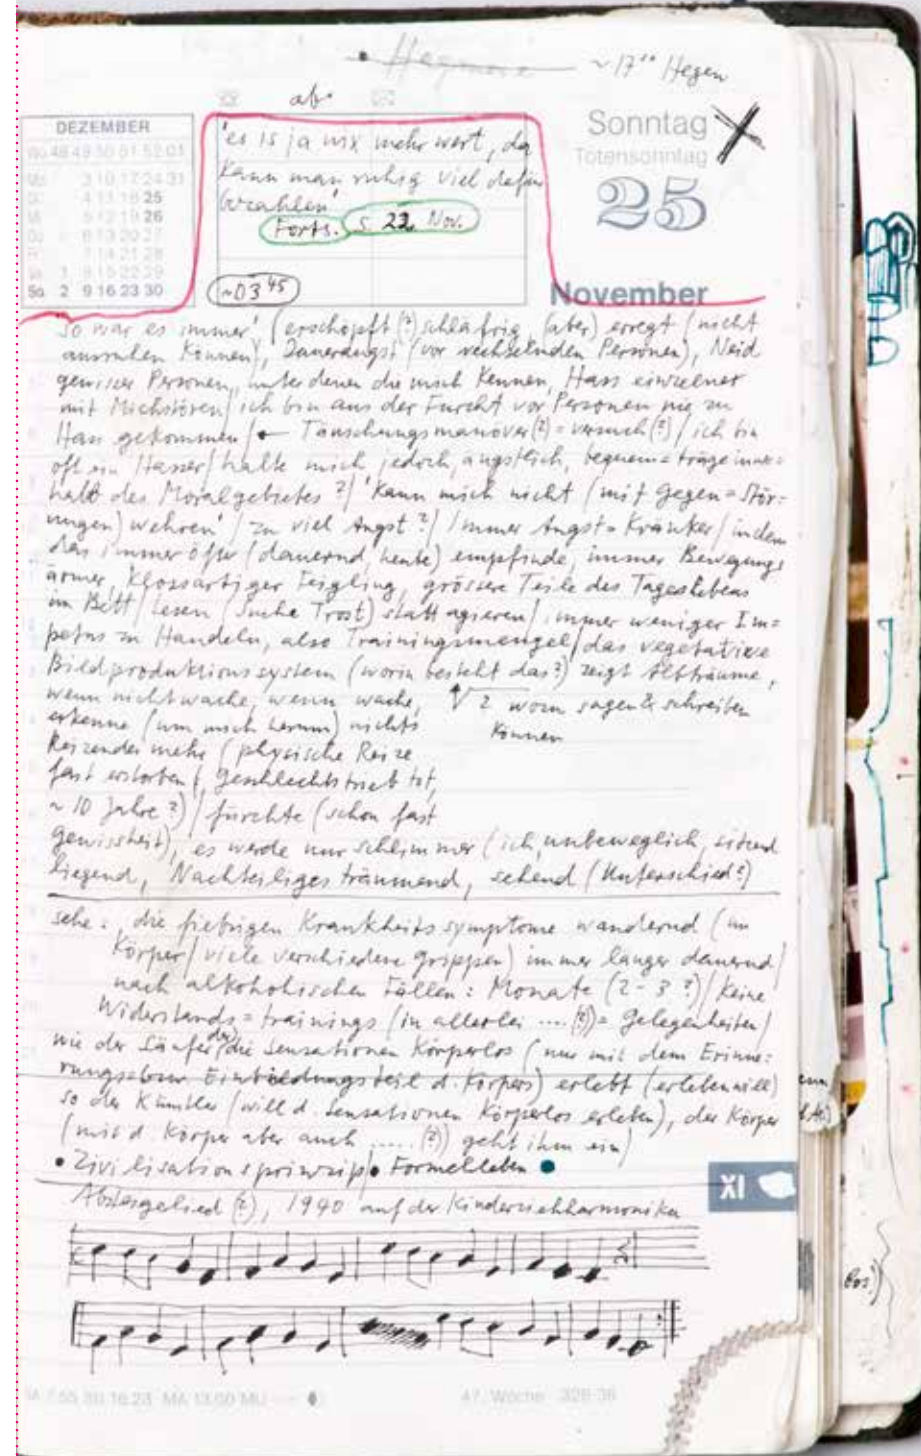 Hegmone ~17°° Hegen
ab·
DEZEMBER
Wo 48 49 50 51 52 01
Mo 3 10 17 24 31
Di 4 11 18 25
Mi 5 12 19 26
Do 6 13 20 27
Fr 7 14 21 28
Sa 1 8 15 22 29
So 2 9 16 23 30
'es is ja nix mehr wert, da
kann man ruhig viel dafür
bezahlen'
Forts. S. 22. Nov.
~03⁴⁵
Sonntag
Totensonntag
25
November
so war es immer' (erschöpft (?) schläfrig, (aber) erregt (nicht
ausruhen können), Dauerangst (vor wechselnden Personen), Neid
gewisser Personen, unter denen die mich kennen, Hass einzelner
mit Michstören/ich bin aus der Furcht vor Personen nie zu
Hass gekommen/← Täuschungsmanöver(?)=versuch(?)/ich bin
oft ein Hasser/halte mich jedoch, ängstlich, bequem=träge inner=
halb des Moralgebietes?/'kann mich nicht (mit Gegen=Stör=
ungen) wehren'/zu viel Angst?/Immer Angst=Kranker/indem
das immer öfter (dauernd, heute) empfinde, immer Bewegungs
ärmer, klossartiger Feigling, grössere Teile des Tageslebens
im Bett (lesen, suche Trost) statt agieren/immer weniger Im=
petus zu Handeln, also Trainingsmengel/das vegetative
Bildproduktionssystem (worin besteht das?) zeigt Albträume,
wenn nicht wache, wenn wache,
2 worin sagen & schreiben
können
erkenne (um mich herum) nichts
Reizendes mehr (physische Reize
fast erstorben (, Geschlechtstrieb tot,
~10 Jahre?)/fürchte (schon fast
Gewissheit), es werde nur schlimmer (ich, unbeweglich, sitzend
liegend, Nachteiliges träumend, sehend (Unterschied?)
sehe: die fiebrigen Krankheitssymptome wandernd (im
Körper/viele verschiedene Grippen) immer länger dauernd/
nach alkoholischen Fällen: Monate (2-3?)/keine
Widerstands=trainings (in allerlei ....(?)=Gelegenheiten)
wie der Säufer, der die Sensationen Körperlos (nur mit dem Erinne=
Einbildungsteil d. Körpers) erlebt (erleben will)
so der Künstler (will d. Sensationen Körperlos erleben), der Körper
(mit d. Körper aber auch .....(?)) geht ihm ein)
• Zivilisationsprinzip/• Formelleben ●
XI
(?), 1940 auf der Kinderziehharmonika
47. Woche 329-36